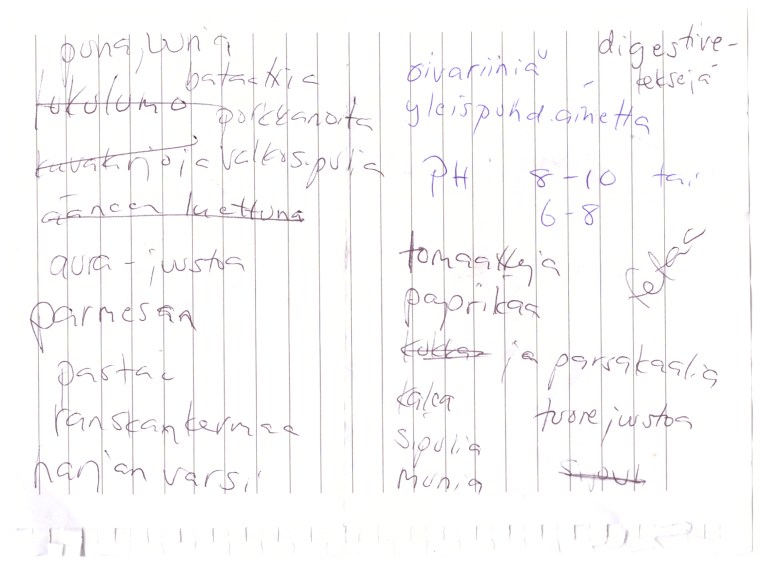 punajuuria
bataattia
lukulumo porkkanoita
kuvakirjoja valkosipulia
ääneen luettuna
aura-juustoa
parmesan
pastaa
ranskankermaa
harjan varsi
digestive-
keksejä
oivariinia
yleispuhd.ainetta
PH 8-10 tai
6-8
tomaatteja
fetaa
paprikaa
kukka ja parsakaalia
kalaa
tuorejuustoa
sipulia
munia